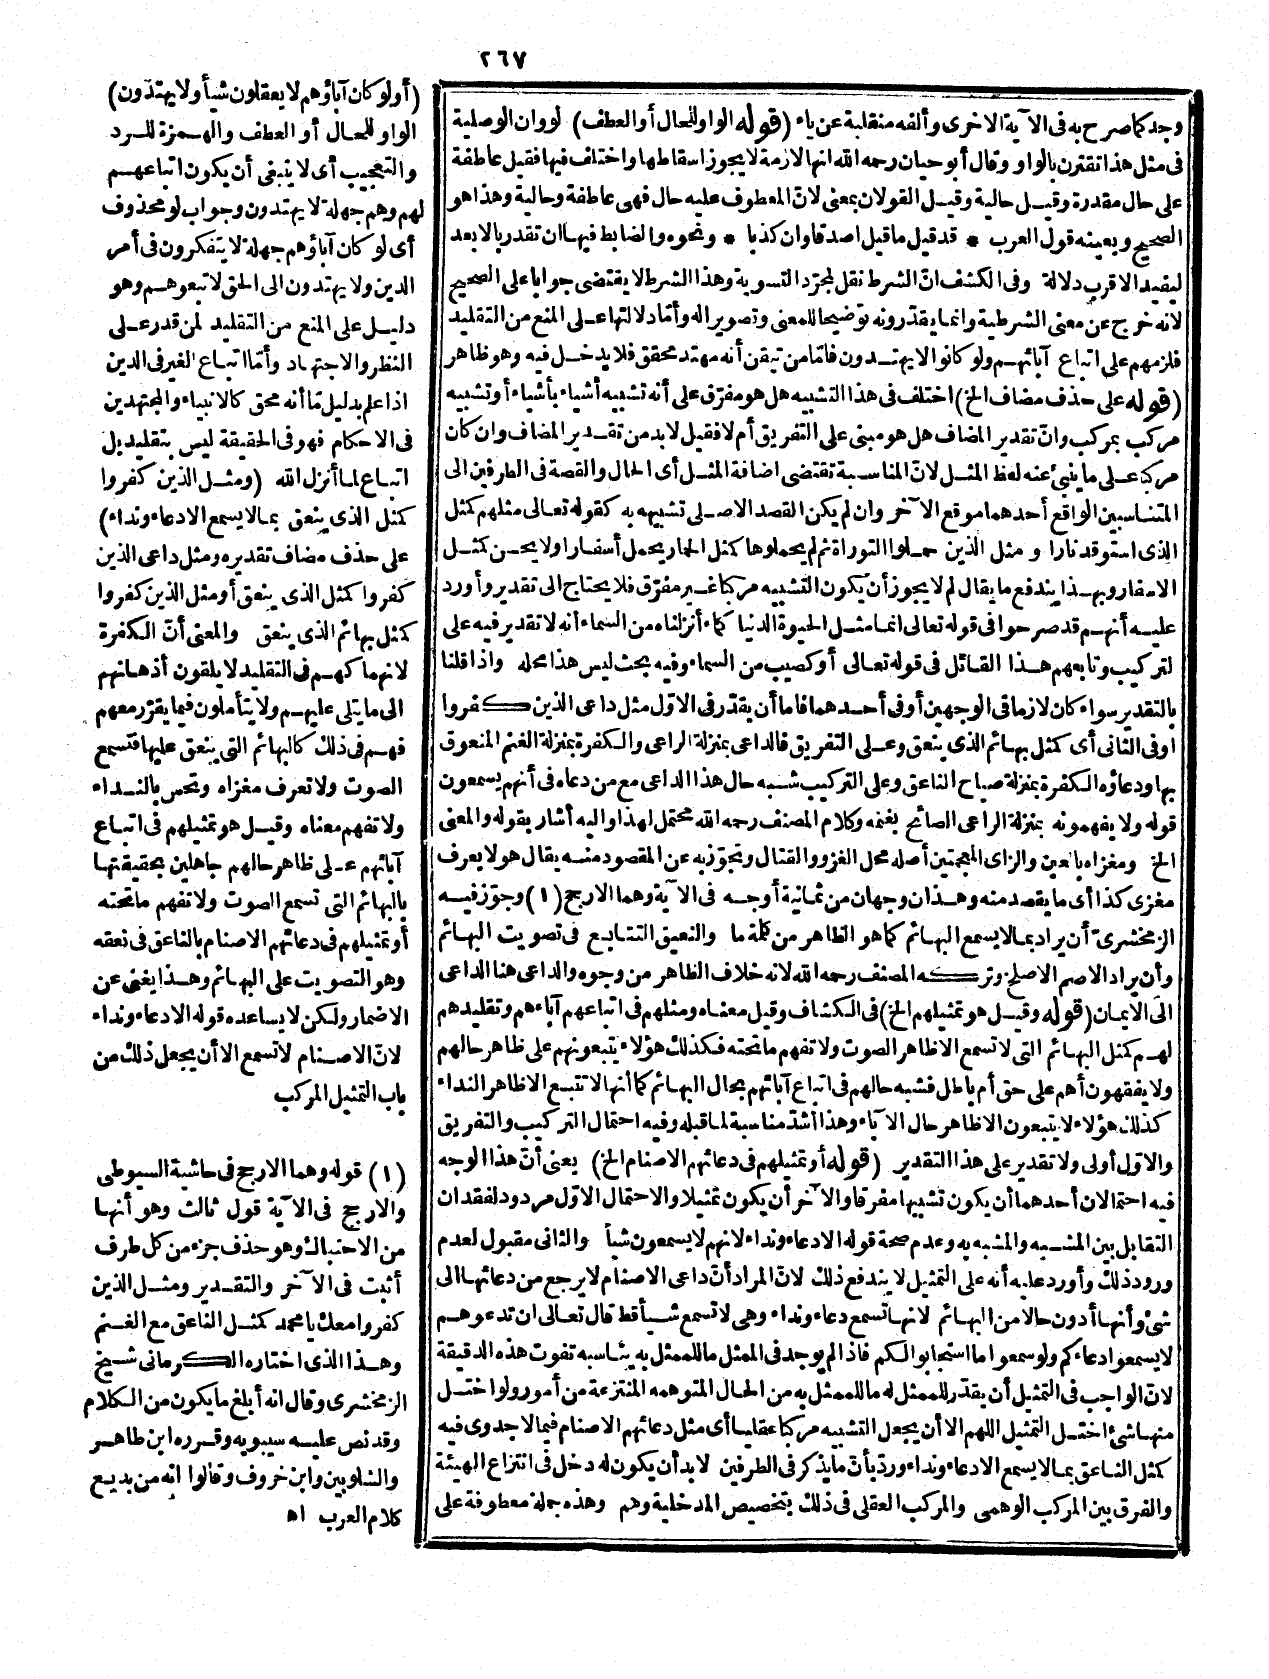 ٢٦٧
وجد كما صرح به فى الآية الاخرى وألفه منقلبة عن ياء (قوله الواو للحال أو العطف) لو وان الوصلية
فى مثل هذا تقترن بالواو وقال أبو حيان رحمه الله انها لازمة لا يجوز اسقاطها واختلف فيها فقيل عاطفة
على حال مقدرة وقيل حالية وقيل القولان بمعنى لانّ المعطوف عليه حال فهى عاطفة وحالية وهذا هو
الصحيح وبعينه قول العرب * قد قيل ما قيل ان صدقا وان كذبا * ونحوه والضابط فيها ان تقدر بالابعد
ليفيد الاقرب دلالة وفى الكشف انّ الشرط نقل لمجرّد التسوية وهذا الشرط لا يقتضى جوابا على الصحيح
لانه خرج عن معنى الشرطية وانما يقدّرونه توضيحا للمعنى وتصويرا له وأمّا دلالتها على المنع من التقليد
فلزمهم على اتباع آبائهم ولو كانوا لا يهتدون فامّا من تيقن أنه مهتد محقق فلا يدخل فيه وهو ظاهر
(قوله على حذف مضاف الخ) اختلف فى هذا التشبيه هل هو مفرّق على أنه تشبيه أشياء بأشياء أو تشبيه
مركب بمركب وانّ تقدير المضاف هل هو مبنى على التفريق أم لا فقيل لابد من تقدير المضاف وان كان
مركبا على ما ينبئ عنه لفظ المثل لانّ المناسبة تقتضى اضافة المثل أى الحال والقصة فى الطرفين الى
المتناسبين الواقع أحدهما موقع الآخر وان لم يكن القصد الاصلى تشبيهه به كقوله تعالى مثلهم كمثل
الذى استوقد نارا و مثل الذين حملوا التوراة ثم لم يحملوها كمثل الحمار يحمل أسفارا ولا يحسن كمثل
الاسفار وبهذا يندفع ما يقال لم لا يجوز أن يكون التشبيه مركبا غير مفرّق فلا يحتاج الى تقدير وأورد
عليه أنهم قد صرحوا فى قوله تعالى انما مثل الحيوة الدنيا كماء أنزلناه من السماء أنه لا تقدير فيه على
لتركيب وتابعهم هذا القائل فى قوله تعالى أو كصيب من السماء وفيه بحث ليس هذا محله واذا قلنا
بالتقدير سواء كان لازما فى الوجهين أو فى أحدهما فاما أن يقدّر فى الاوّل مثل داعى الذين كفروا
اوفى الثانى أى كمثل بهائم الذى ينعق وعلى التفريق فالداعى بمنزلة الراعى والكفرة بمنزلة الغنم المنعوق
بها ودعاؤه الكفرة بمنزلة صياح الناعق وعلى التركيب شبه حال هذا الداعى مع من دعاه فى أنهم يسمعون
قوله ولا يفهمونه بمنزلة الراعى الصائح بغنمه وكلام المصنف رحمه الله محتمل لهذا واليه أشار بقوله والمعنى
الخ ومغزاه بالغين والزاى المعجمتين أصله محل الغزو والقتال وتجوّز به عن المقصود منه يقال هو لا يعرف
مغزى كذا أى ما يقصد منه وهذان وجهان من ثمانية أوجه فى الآية وهما الارجح (١) وجوّز فيه
الزمخشرىّ أن يراد بما لا يسمع البهائم كما هو الظاهر من كلمة ما والنعيق التتابع فى تصويت البهائم
وأن يراد الاصم الاصلخ وتركه المصنف رحمه الله لانه خلاف الظاهر من وجوه والداعى هنا الداعى
الى الايمان (قوله وقيل هو تمثيلهم الخ) فى الكشاف وقيل معناه ومثلهم فى اتباعهم آباءهم وتقليدهم
لهم كمثل البهائم التى لا تسمع الا ظاهر الصوت ولا تفهم ما تحته فكذلك هؤلاء يتبعونهم على ظاهر حالهم
ولا يفقهون أهم على حق أم باطل فشبه حالهم فى اتباع آبائهم بحال البهائم كما أنها لا تتبع الا ظاهر النداء
كذلك هؤلاء لا يتبعون الا ظاهر حال الآباء وهذا أشدّ مناسبة لما قبله وفيه احتمال التركيب والتفريق
والاوّل أولى ولا تقدير على هذا التقدير (قوله أو تمثيلهم فى دعائهم الاصنام الخ) يعنى أنّ هذا الوجه
فيه احتمالان أحدهما أن يكون تشبيها مفرقا والآخر أن يكون تمثيلا والاحتمال الاوّل مردود لفقدان
التقابل بين المشبه والمشبه به وعدم صحة قوله الا دعاء ونداء لانهم لا يسمعون شيأ والثانى مقبول لعدم
ورود ذلك وأورد عليه أنه على التمثيل لا يندفع ذلك لانّ المراد أنّ داعى الاصنام لا يرجع من دعائها الى
شئ وأنها أدون حالا من البهائم لانها تسمع دعاء ونداء وهى لا تسمع شيأ قط قال تعالى ان تدعوهم
لا يسمعوا دعاءكم ولو سمعوا ما استجابوا لكم فاذا لم يوجد فى الممثل ما للممثل به يناسبه تفوت هذه الدقيقة
لانّ الواجب فى التمثيل أن يقدّر للممثل له ما للممثل به من الحال المتوهمه المنتزعة من أمور ولو اختل
منها شئ اختل التمثيل اللهم الا أن يجعل التشبيه مركبا عقليا أى مثل دعائهم الاصنام فيما لا جدوى فيه
كمثل الناعق بما لا يسمع الا دعاء ونداء وردّ بأنّ ما يذكر فى الطرفين لابد أن يكون له دخل فى انتزاع الهيئة
والفرق بين المركب الوهمى والمركب العقلى فى ذلك بتخصيص المدخلية وهم وهذه جملة معطوفة على
(أولو كان آباؤهم لا يعقلون شيأ ولا يهتدون)
الواو للحال أو العطف والهمزة للرد
والتعجيب أى لا ينبغى أن يكون اتباعهم
لهم وهم جهلة لا يهتدون وجواب لو محذوف
أى لو كان آباؤهم جهلة لا يتفكرون فى أمر
الدين ولا يهتدون الى الحق لاتبعوهم وهو
دليل على المنع من التقليد لمن قدر على
النظر والاجتهاد وأمّا اتباع الغير فى الدين
اذا علم بدليل مّا أنه محق كالانبياء والمجتهدين
فى الاحكام فهو فى الحقيقة ليس بتقليد بل
اتباع لما أنزل الله (ومثل الذين كفروا
كمثل الذى ينعق بما لا يسمع الا دعاء ونداء)
على حذف مضاف تقديره ومثل داعى الذين
كفروا كمثل الذى ينعق أو مثل الذين كفروا
كمثل بهائم الذى ينعق والمعنى أنّ الكفرة
لانهماكهم فى التقليد لا يلقون أذهانهم
الى ما يتلى عليهم ولا يتأملون فيما يقرّر معهم
فهم فى ذلك كالبهائم التى ينعق عليها فتسمع
الصوت ولا تعرف مغزاه وتحس بالنداء
ولا تفهم معناه وقيل هو تمثيلهم فى اتباع
آبائهم على ظاهر حالهم جاهلين بحقيقتها
بالبهائم التى تسمع الصوت ولا تفهم ما تحته
أو تمثيلهم فى دعائهم الاصنام بالناعق فى نعقه
وهو التصويت على البهائم وهذا يغنى عن
الاضمار ولكن لا يساعده قوله الا دعاء ونداء
لانّ الاصنام لا تسمع الا أن يجعل ذلك من
باب التمثيل المركب
(١) قوله وهما الارجح فى حاشية السيوطى
والارجح فى الآية قول ثالث وهو أنها
من الاحتباك وهو حذف جزء من كل طرف
أثبت فى الآخر والتقدير ومثل الذين
كفروا معك يا محمد كمثل الناعق مع الغنم
وهذا الذى اختاره الكرمانى شيخ
الزمخشرى وقال انه أبلغ ما يكون من الكلام
وقد نص عليه سيبويه وقرره ابن طاهر
والشلوبين وابن خروف وقالوا انه من بديع
كلام العرب اه